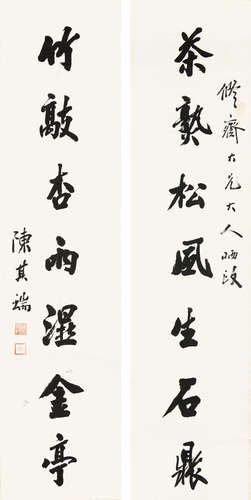 脩齋大兄大人哂政
茶熟松風生石鼎
竹敲杏雨溼金亭
陳其瑞